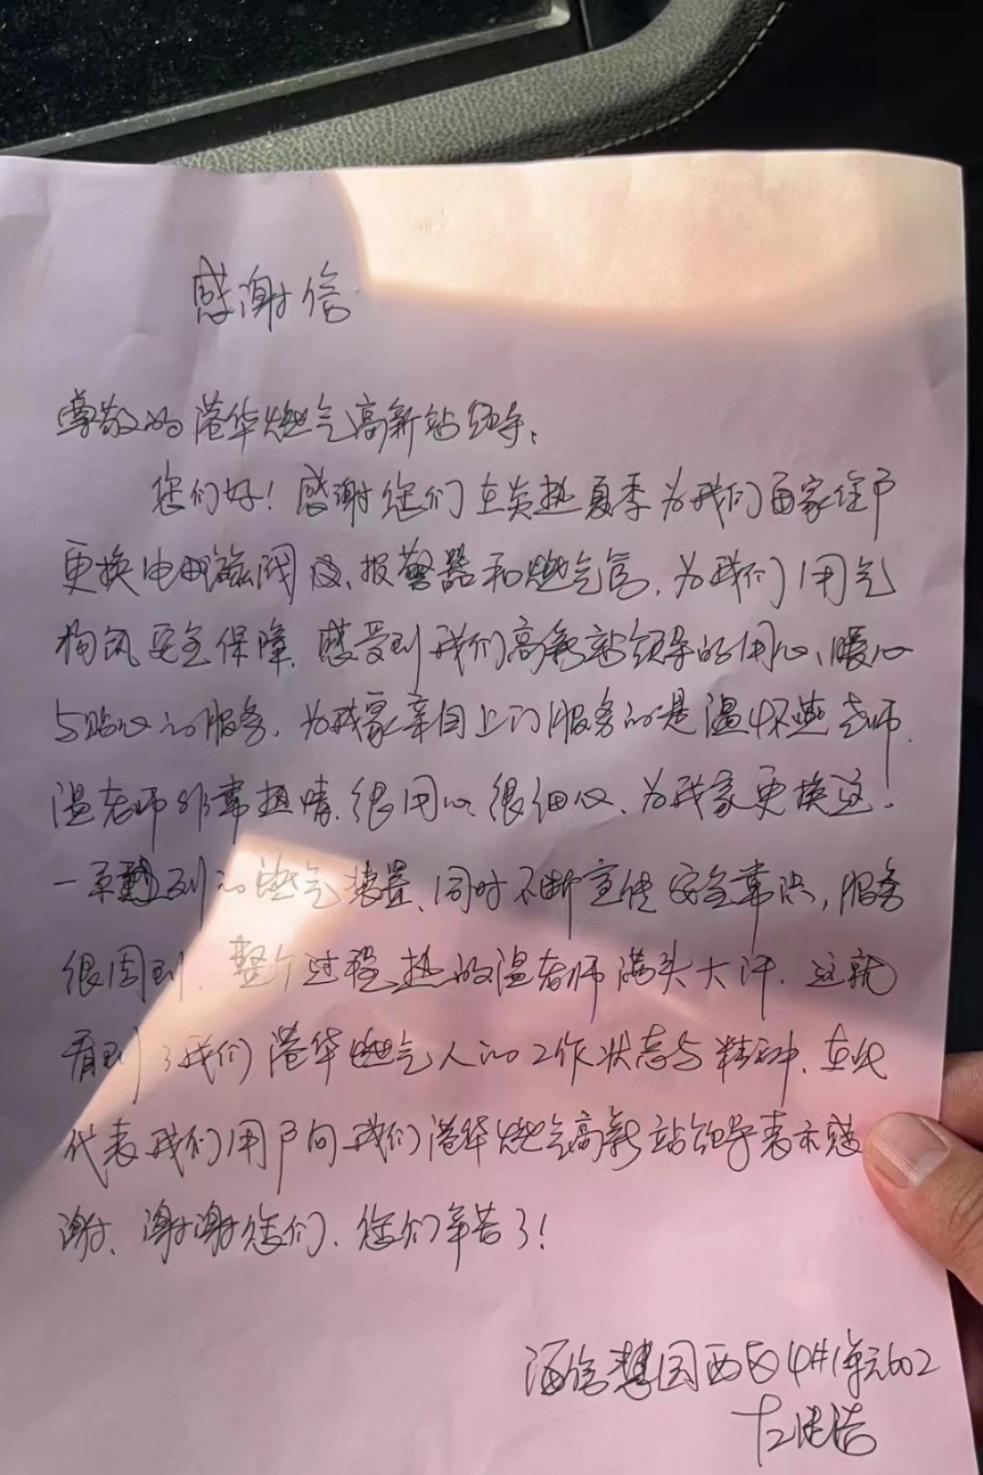 感谢信
尊敬的港华燃气高新站领导：
您们好！感谢您们在炎热夏季为我们百家住户
更换电磁阀、报警器和燃气管，为我们用气
构筑安全保障。感受到我们高新站领导的用心、暖心
与贴心的服务。为我家亲自上门服务的是温怀燕老师。
温老师非常热情、很用心、很细心、为我家更换这
一系列的燃气装置、同时不断宣传安全常识，服务
很周到。整个过程热的温老师满头大汗。这就
看到了我们港华燃气人的工作状态与精神。在此
代表我们用户向我们港华燃气高新站领导表示感
谢、谢谢您们、您们辛苦了！
海信慧园西区4#1单元602